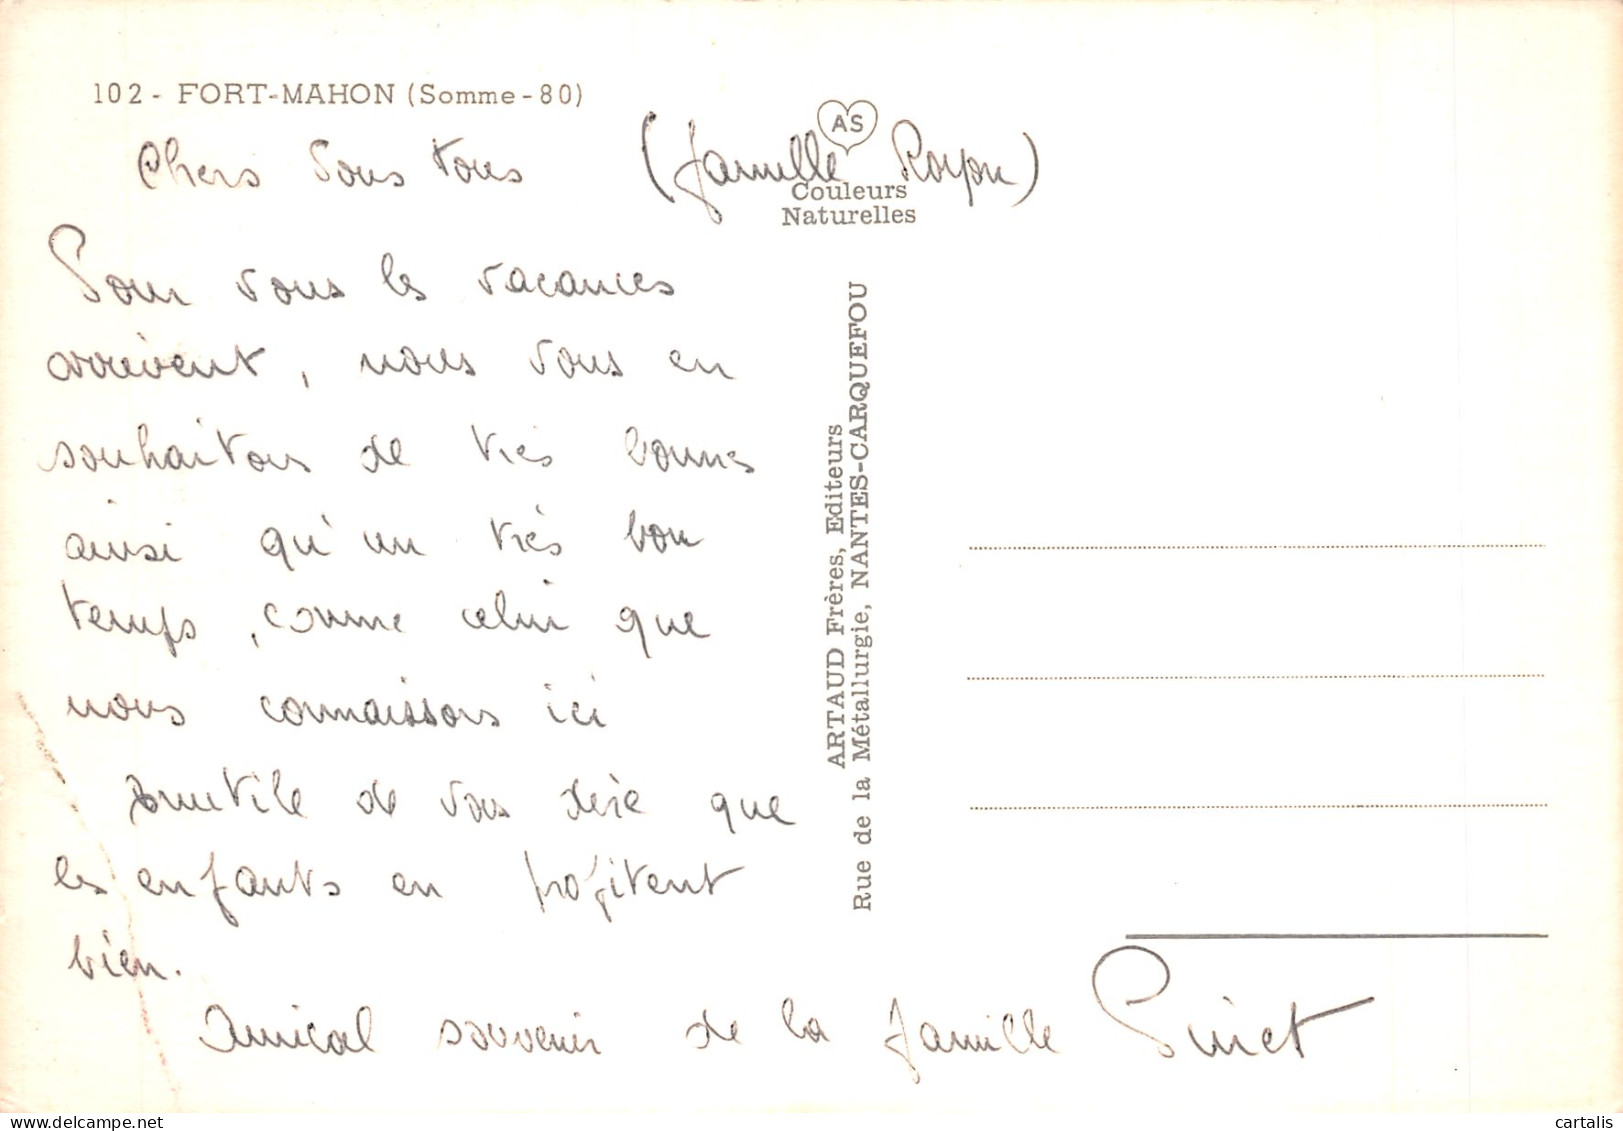 102 - FORT-MAHON (Somme - 80)
AS
Couleurs
Naturelles
Chers Vous tous (famille Royon)
Pour vous les vacances
arrivent, nous vous en
souhaitons de très bonnes
ainsi qu'un très bon
temps, comme celui que
nous connaissons ici
Inutile de vous dire que
les enfants en profitent
bien.
Amical souvenir de la famille Pinet
ARTAUD Frères, Editeurs
Rue de la Métallurgie, NANTES-CARQUEFOU
cartalis